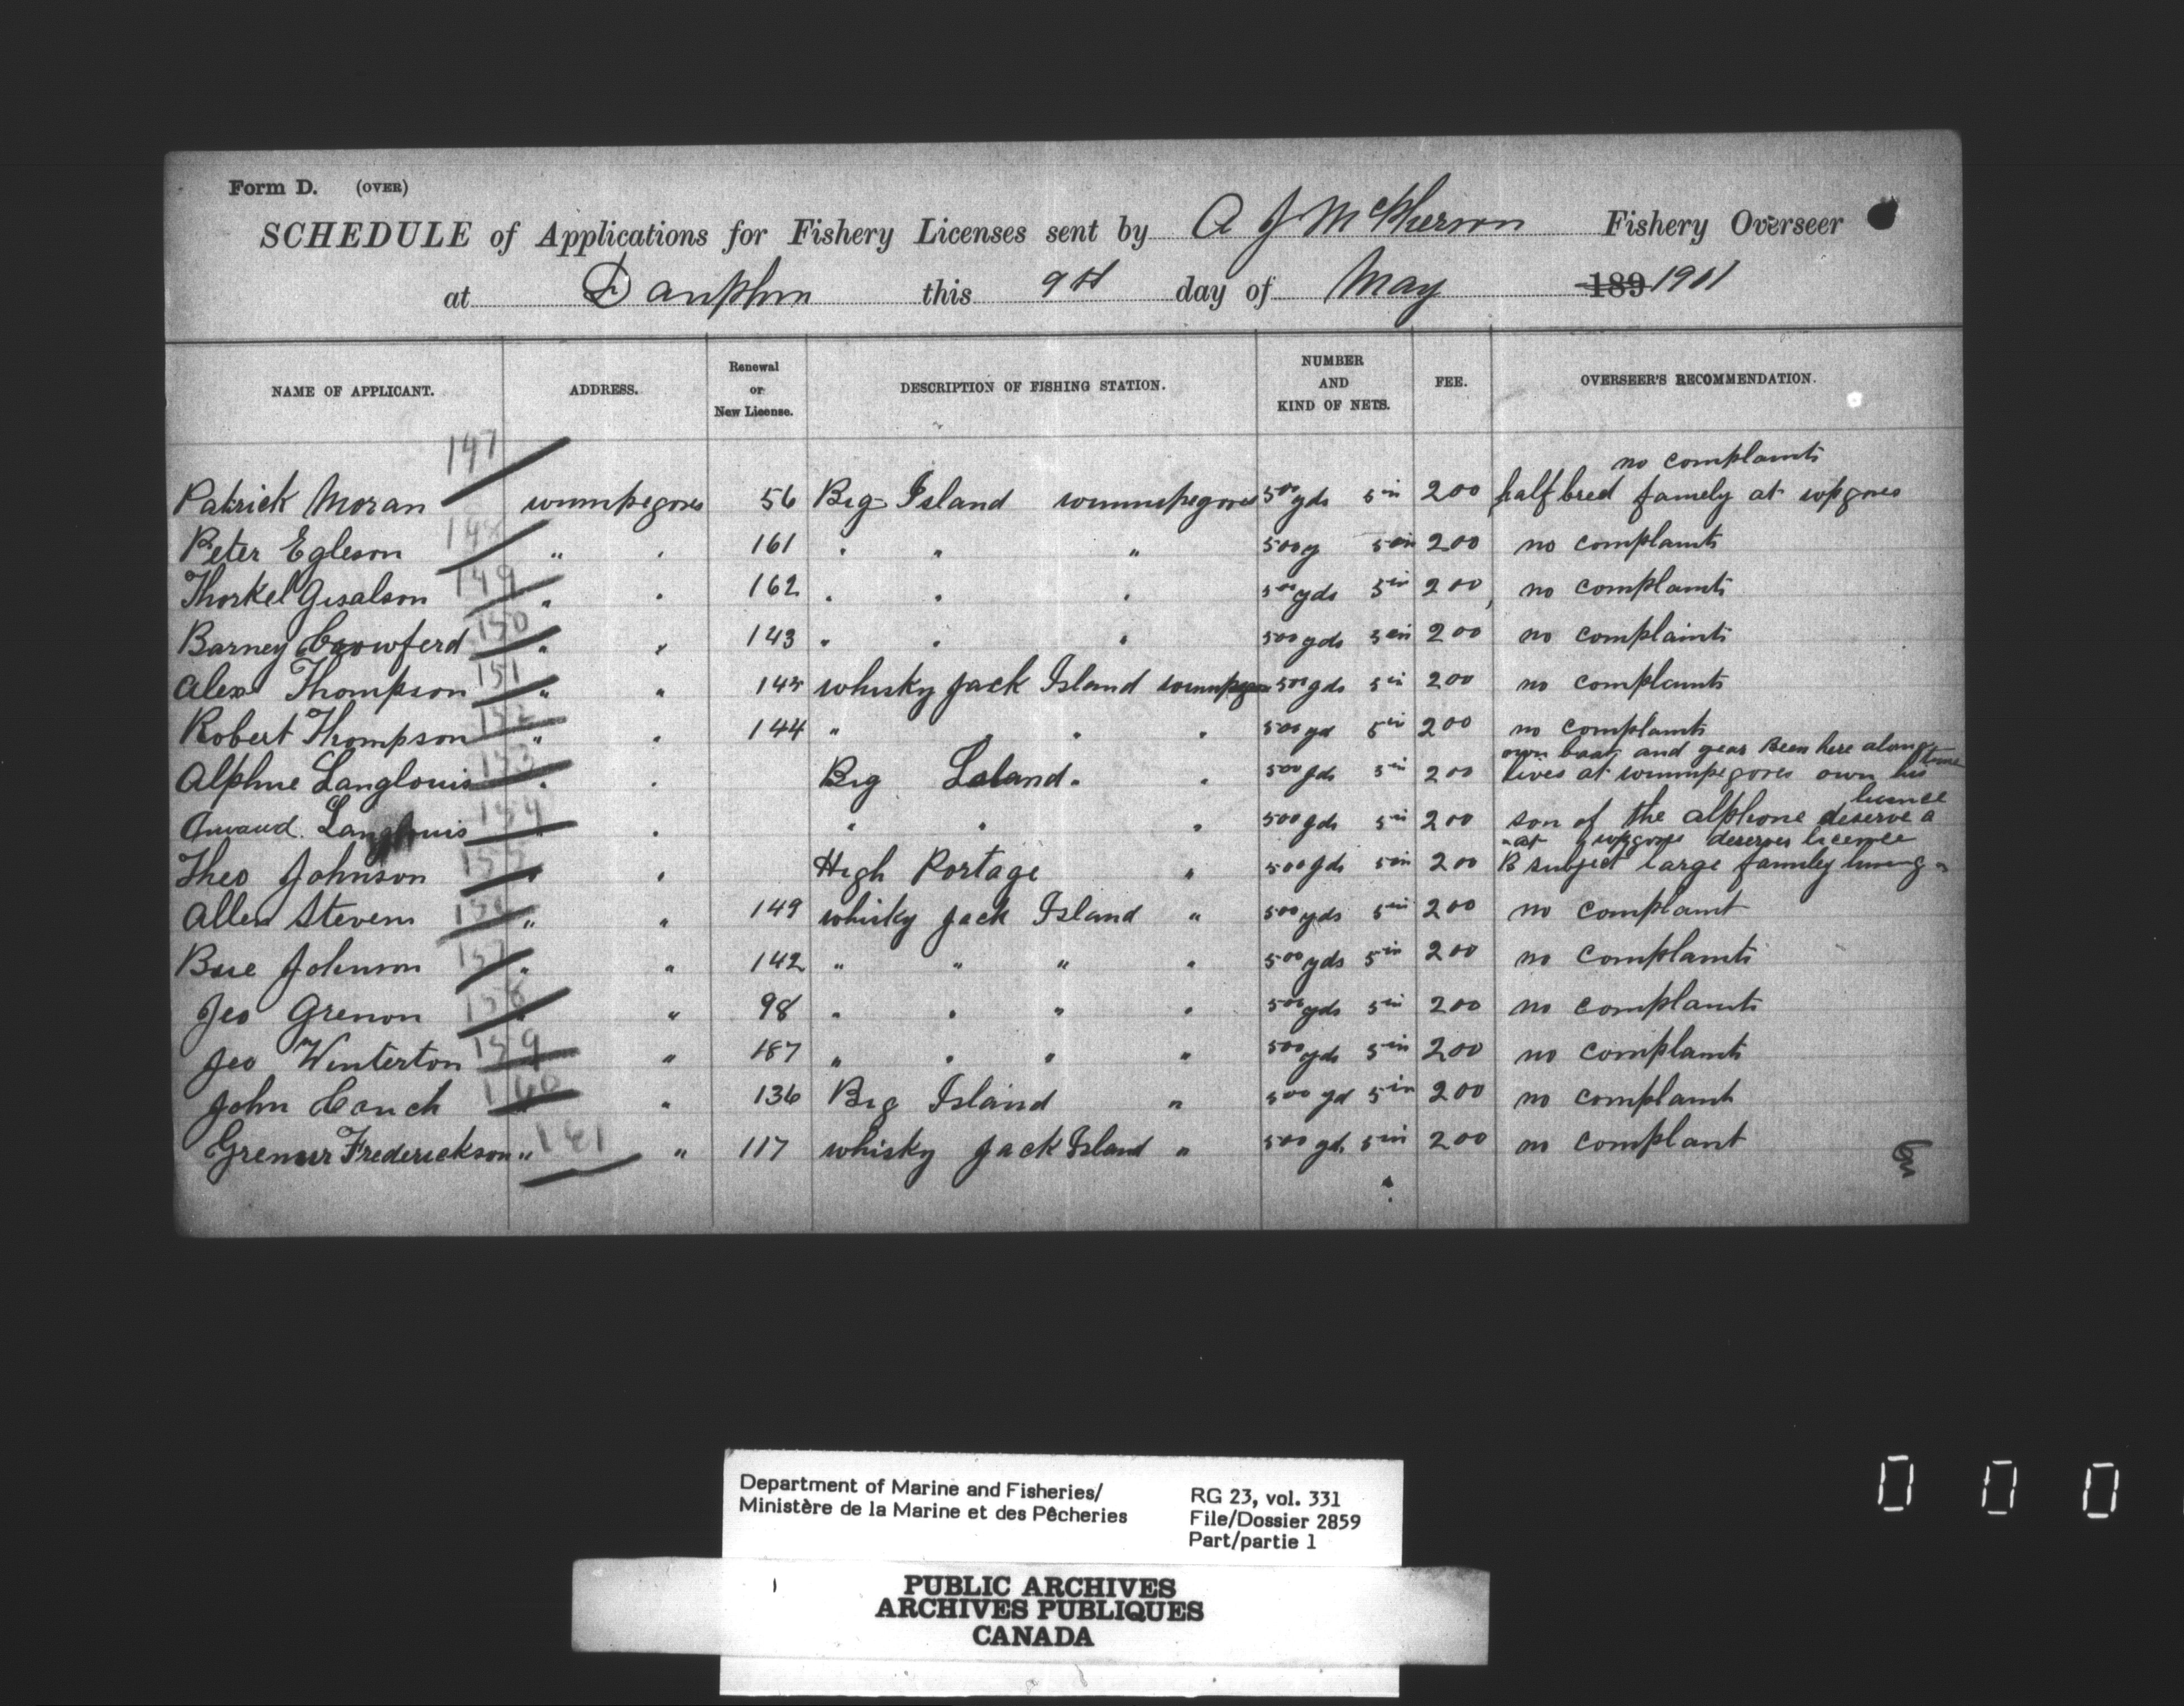 Form D. (OVER)
SCHEDULE of Applications for Fishery Licenses sent by A J McPherson Fishery Overseer
at Dauphin this 9th day of May 189 1901
NAME OF APPLICANT. ADDRESS. Renewal or New License. DESCRIPTION OF FISHING STATION. NUMBER AND KIND OF NETS. FEE. OVERSEER'S RECOMMENDATION.
147 no complaints
Patrick Moran winnipegoses 56 Big Island winnipegoses 500 yds 5 in 2 00 half breed famely at wpgoses
Peter Egleson 148 " " 161 " " " 500 y 5 in 2 00 no complaints
Thorkel Gisalson 149 " " 162 " " " 500 yds 5 in 2 00 no complaints
Barney Crowferd 150 " " 143 " " " 500 yds 5 in 2 00 no complaints
Alex Thompson 151 " " 145 whisky Jack Island 500 yds 5 in 2 00 no complaints
Robert Thompson 152 " " 144 " " " " 500 yd 5 in 2 00 no complaints
own boat and gear Been here along time
Alphne Langlouis 153 " " Big Island " " 500 yds 5 in 2 00 lives at winnipegoses own his
licence
Langlouis 154 " " " " " 500 yds 5 in 2 00 son of the alphone deserve a
at wpgose deserves licence
Theo Johnson 155 " " High Portage " 500 yds 5 in 2 00 B subject large famley living
Allen Stevens 156 " " 149 whisky Jack Island " 500 yds 5 in 2 00 no complaint
Johnson 157 " " 142 " " " " 500 yds 5 in 2 00 no complaints
Geo Grenon 158 " " 98 " " " " 500 yds 5 in 2 00 no complaints
Geo Winterton 159 " " 187 " " " " 500 yds 5 in 2 00 no complaints
John Couch 160 " " 136 Big Island " 500 yd 5 in 2 00 no complaint
Frederickson " 161 " 117 whisky Jack Island " 500 yd 5 in 2 00 no complant
Department of Marine and Fisheries/
Ministère de la Marine et des Pêcheries
RG 23, vol. 331
File/Dossier 2859
Part/partie 1
PUBLIC ARCHIVES
ARCHIVES PUBLIQUES
CANADA
0 0 0